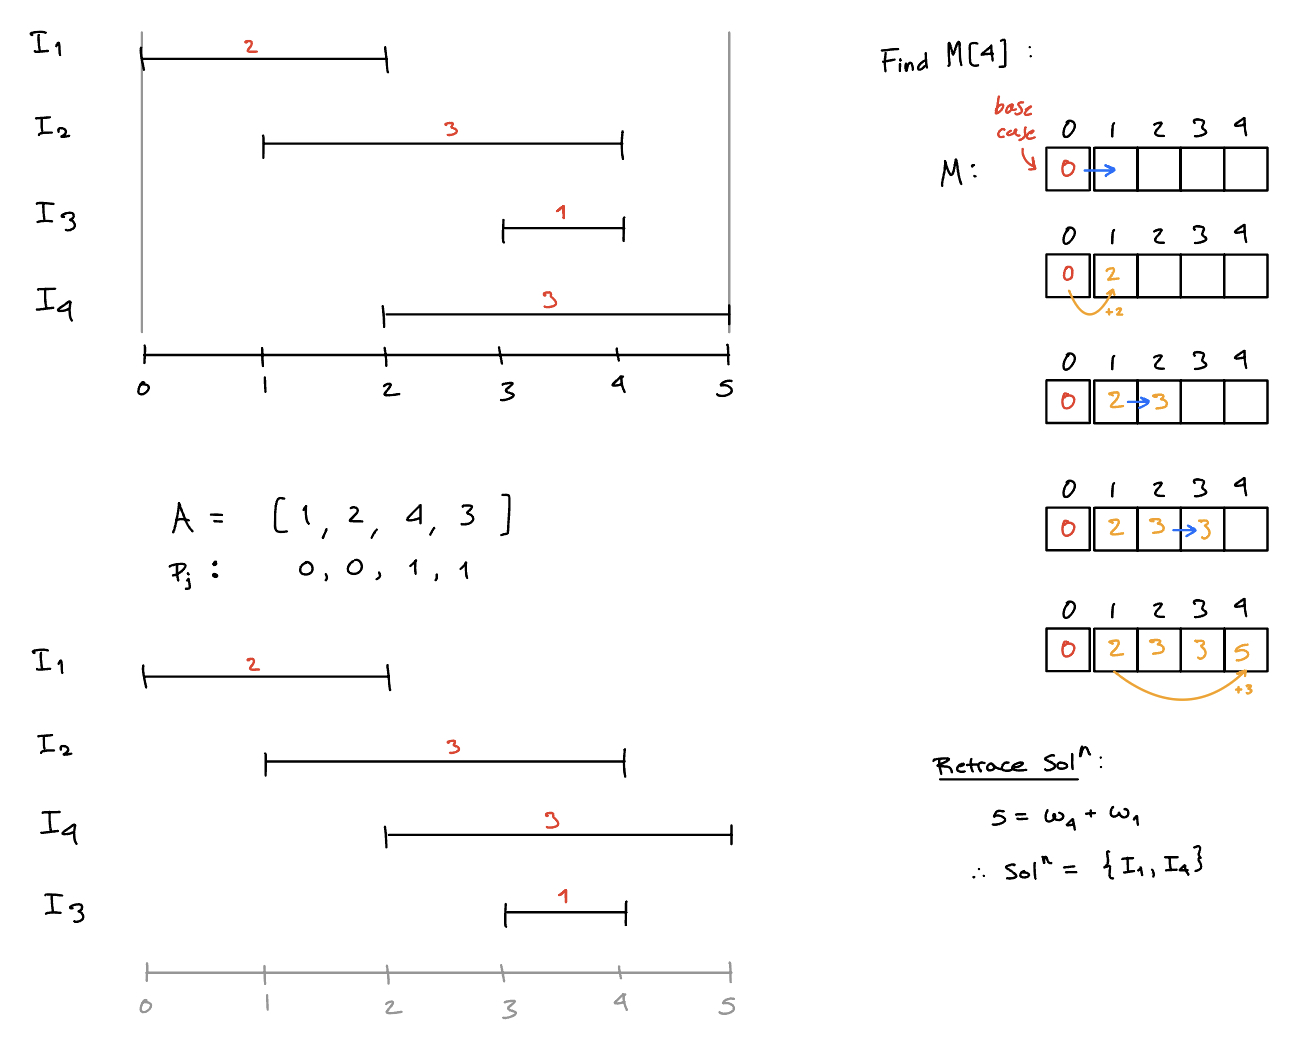 I1 2
I2 3
I3 1
I4 3
0 1 2 3 4 5
A = [1, 2, 4, 3]
Pj : 0, 0, 1, 1
I1 2
I2 3
I4 3
I3 1
0 1 2 3 4 5
Find M[4] :
base
case
0 1 2 3 4
M: 0
0 1 2 3 4
0 2
+2
0 1 2 3 4
0 2 3
0 1 2 3 4
0 2 3 3
0 1 2 3 4
0 2 3 3 5
+3
Retrace Solⁿ:
5 = ω4 + ω1
∴ Solⁿ = {I1, I4}